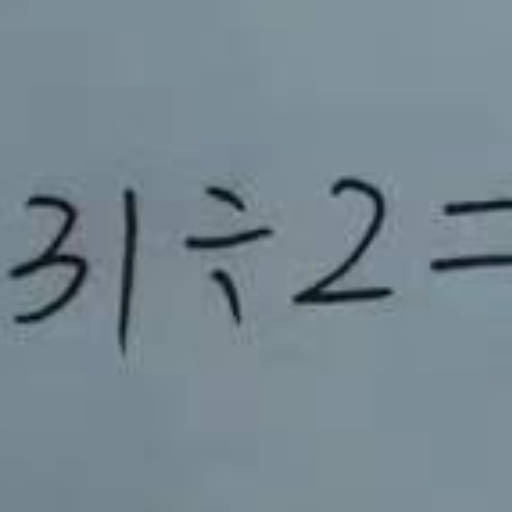 31÷2=